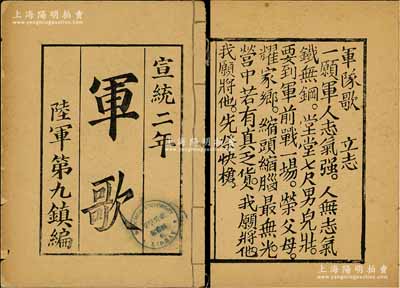 上海陽明拍賣
www.yangmingauction.com
宣統二年
軍歌
陸軍第九鎮編
軍隊歌 立志
一願軍人志氣强。人無志氣
鐵無鋼。堂堂七尺男兒壯。
要到軍前戰一場。榮父母。
耀家鄉。縮頭縮腦最無光
營中若有真乏貨。我願將他
我願將他。先吃快槍。